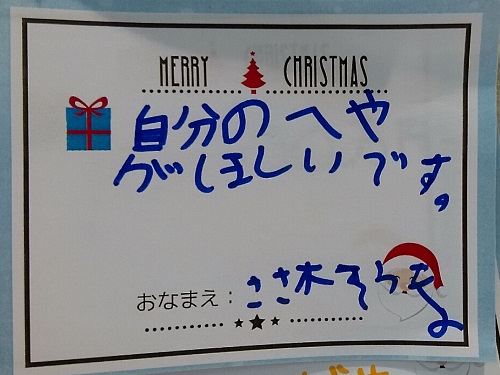 MERRY CHRISTMAS
自分のへや
がほしいです。
おなまえ：ささ木そらき